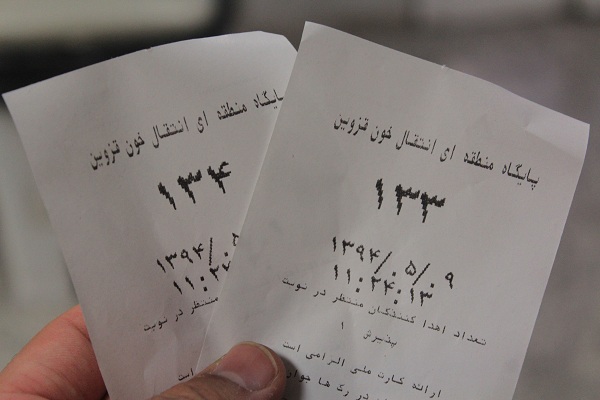 پایگاه منطقه ای انتقال خون قزوین
۱۳۴
۱۳۹۴/۰
۱۱:۲۴
منتظر در نوبت
است
پایگاه منطقه ای انتقال خون قزوین
۱۳۳
۱۳۹۴/۰۵/۰۹
۱۱:۲۴:۱۳
تعداد اهدا کنندگان منتظر در نوبت
پذیرش ۱
ارائه کارت ملی الزامی است
در رک ها جوان